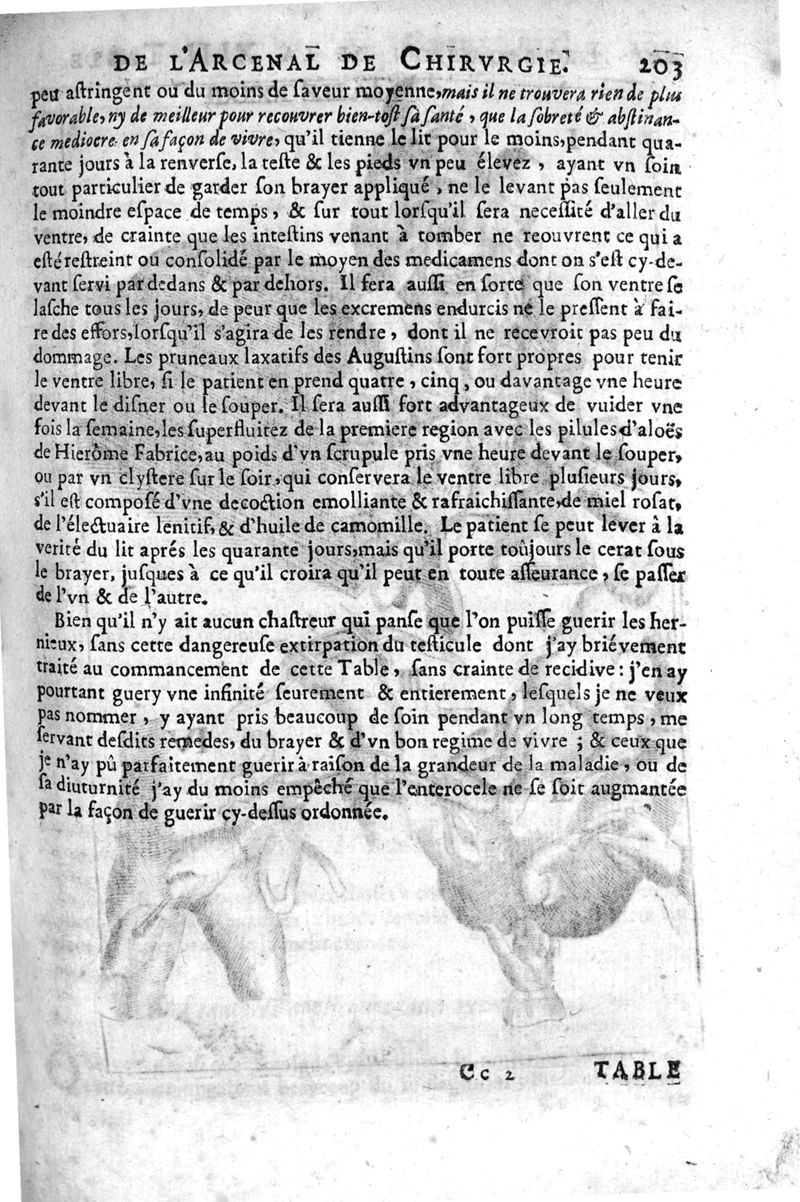 DE L'ARCENAL DE CHIRVRGIE. 203
peu astringent ou du moins de saveur moyenne, mais il ne trouvera rien de plus
favorable, ny de meilleur pour recouvrer bien-tost sa santé, que la sobreté & abstinan-
ce mediocre en sa façon de vivre, qu'il tienne le lit pour le moins, pendant qua-
rante jours à la renverse, la teste & les pieds vn peu élevez, ayant vn soin
tout particulier de garder son brayer appliqué, ne le levant pas seulement
le moindre espace de temps, & sur tout lorsqu'il sera necessité d'aller du
ventre, de crainte que les intestins venant à tomber ne reouvrent ce qui a
esté restreint ou consolidé par le moyen des medicamens dont on s'est cy-de-
vant servi par dedans & par dehors. Il fera aussi en sorte que son ventre se
lasche tous les jours, de peur que les excremens endurcis ne le pressent à fai-
re des effors, lorsqu'il s'agira de les rendre, dont il ne recevroit pas peu du
dommage. Les pruneaux laxatifs des Augustins sont fort propres pour tenir
le ventre libre, si le patient en prend quatre, cinq, ou davantage vne heure
devant le disner ou le souper. Il sera aussi fort advantageux de vuider vne
fois la semaine, les superfluitez de la premiere region avec les pilules d'aloës
de Hierôme Fabrice, au poids d'vn scrupule pris vne heure devant le souper,
ou par vn clystere sur le soir, qui conservera le ventre libre plusieurs jours,
s'il est composé d'vne decoction emolliante & rafraichissante, de miel rosat,
de l'électuaire lenitif, & d'huile de camomille. Le patient se peut lever à la
verité du lit aprés les quarante jours, mais qu'il porte toûjours le cerat sous
le brayer, jusques à ce qu'il croira qu'il peut en toute asseurance, se passer
de l'vn & de l'autre.
Bien qu'il n'y ait aucun chastreur qui panse que l'on puisse guerir les her-
nieux, sans cette dangereuse extirpation du testicule dont j'ay briévement
traité au commancement de cette Table, sans crainte de recidive: j'en ay
pourtant guery vne infinité seurement & entierement, lesquels je ne veux
pas nommer, y ayant pris beaucoup de soin pendant vn long temps, me
servant desdits remedes, du brayer & d'vn bon regime de vivre; & ceux que
je n'ay pû parfaitement guerir à raison de la grandeur de la maladie, ou de
sa diuturnité j'ay du moins empêché que l'enterocele ne se soit augmantée
par la façon de guerir cy-dessus ordonnée.
Cc 2 TABLE